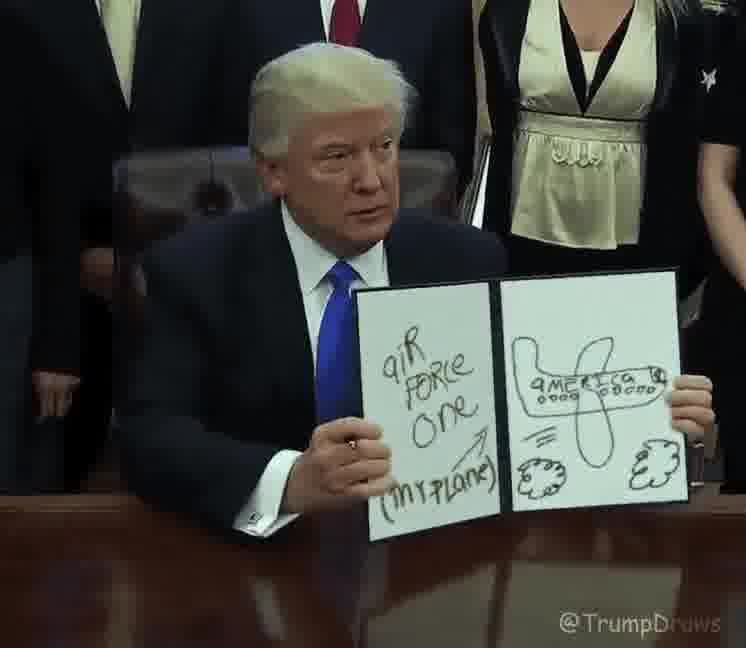 aiR
FORCE
one
(my PLane)
aMERICa
@TrumpDraws